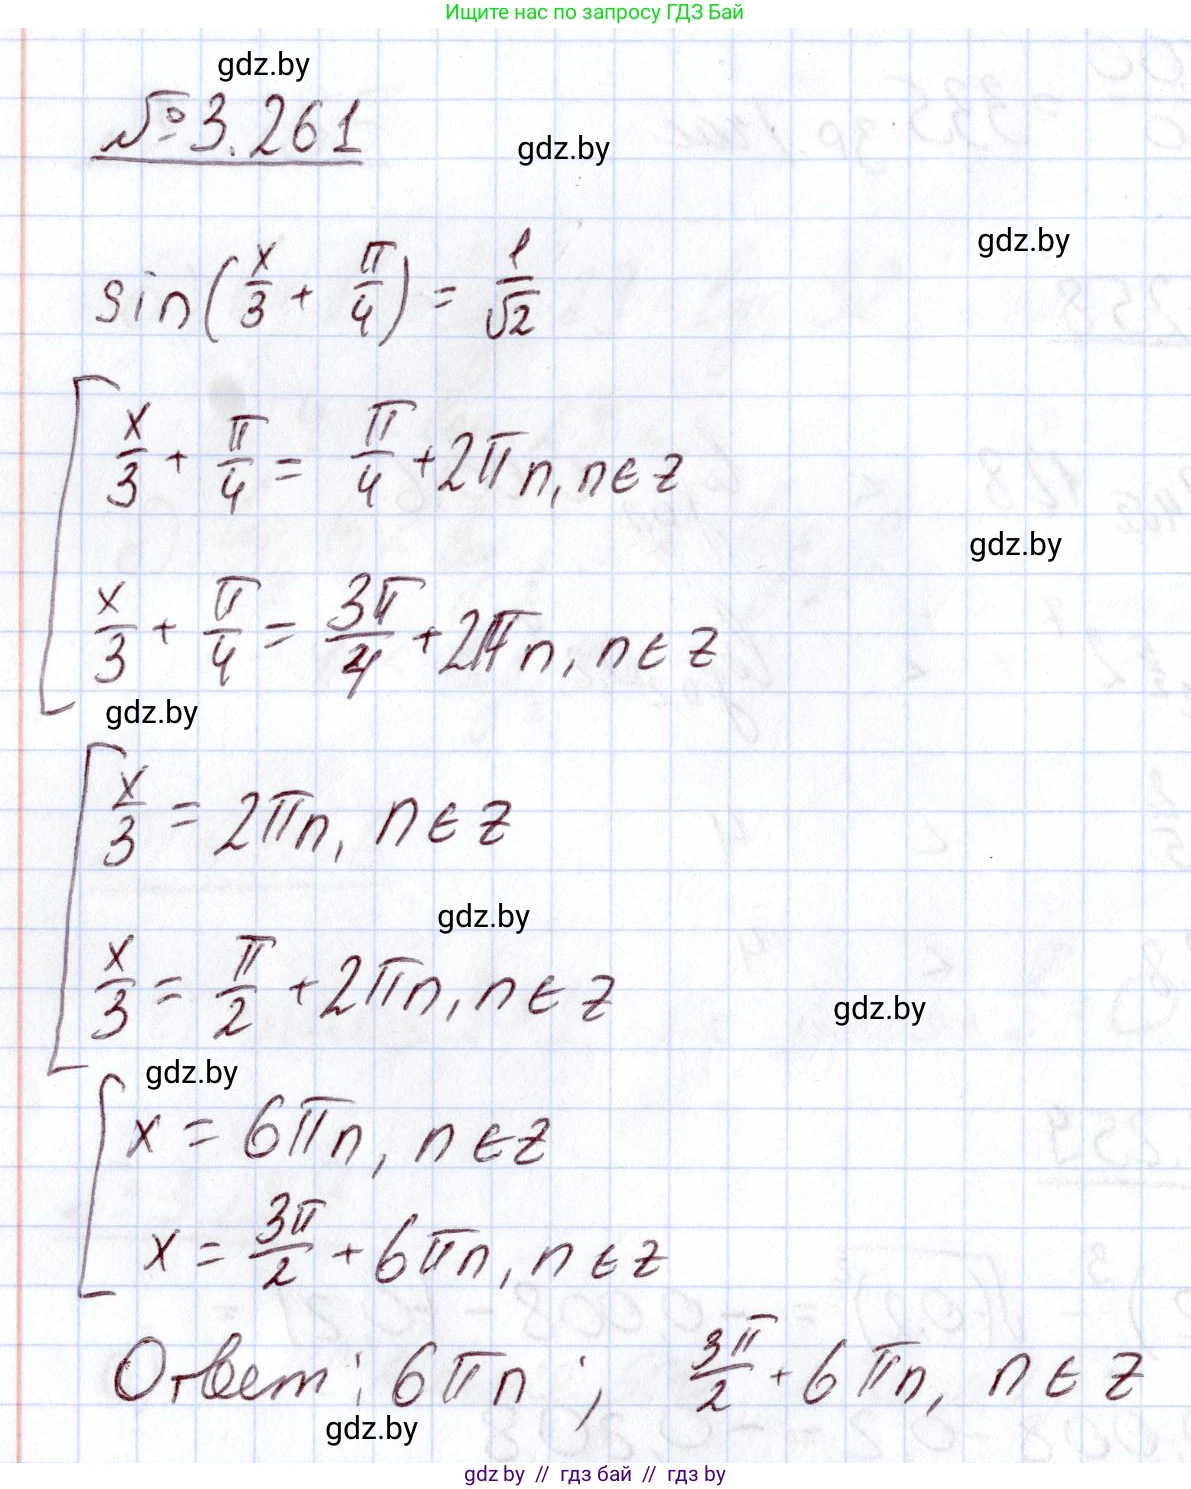 Ищите нас по запросу ГДЗ Бай
gdz.by
№ 3.261
gdz.by
gdz.by
sin(x/3 + π/4) = 1/√2
x/3 + π/4 = π/4 + 2πn, n∈z
gdz.by
x/3 + π/4 = 3π/4 + 2πn, n∈z
gdz.by
x/3 = 2πn, n∈z
gdz.by
x/3 = π/2 + 2πn, n∈z
gdz.by
gdz.by
x = 6πn, n∈z
x = 3π/2 + 6πn, n∈z
Ответ: 6πn; 3π/2 + 6πn, n∈z
gdz.by
gdz.by // гдз бай // гдз by